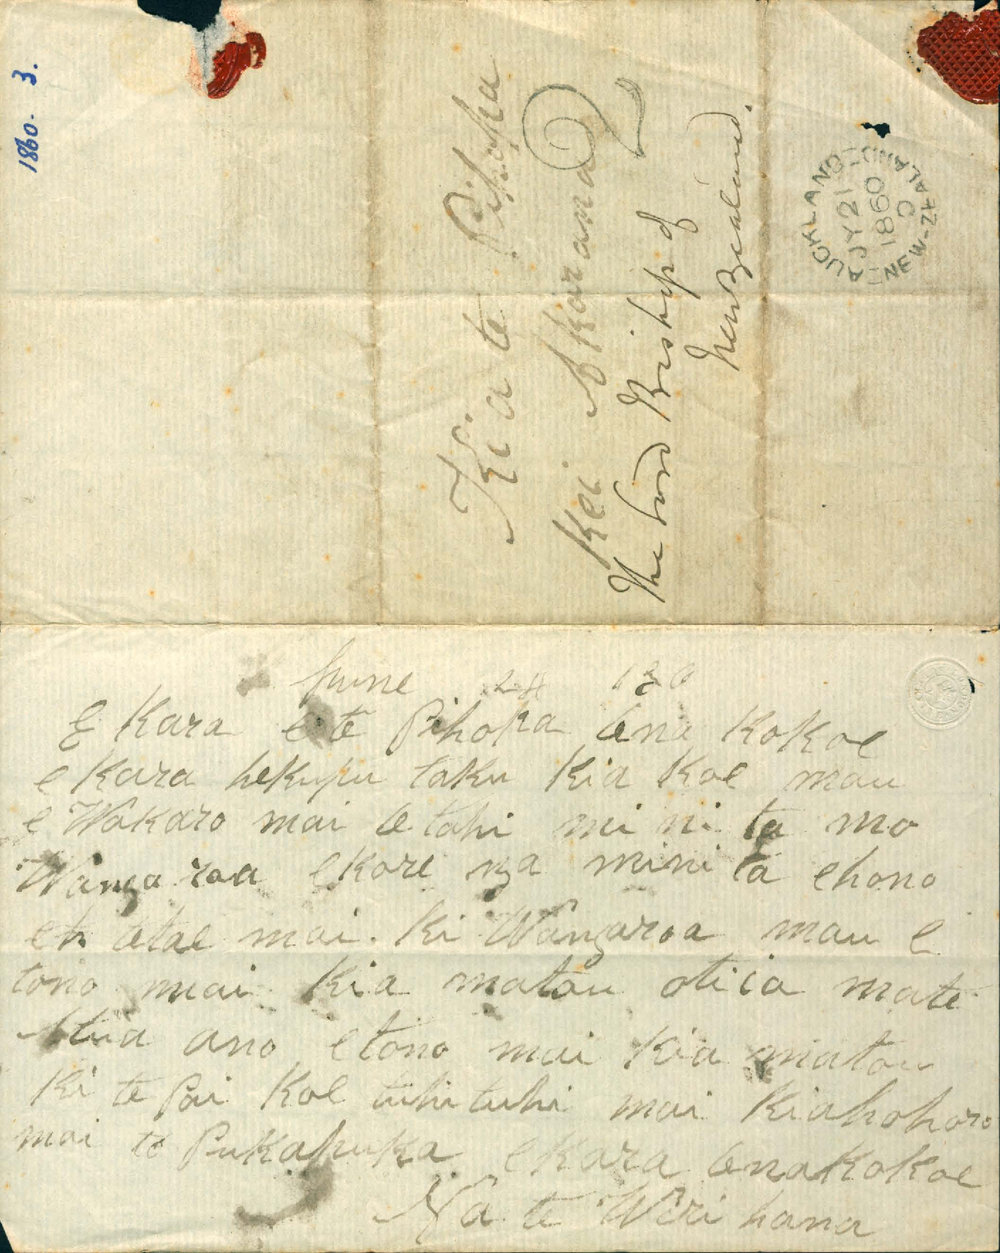 1860. 3.
Kia te Pihopa
Kei Akarana
2
The Lord Bishop of
New Zealand.
AUCKLAND
JY 21
1860
NEW-ZEALAND
June 24
E Kara e te Pihopa tena Kokoe
e Kara hekupu taku Kia Koe mau
e Wakaro mai etahi mini ta mo
Wangaroa ekore nga mini ta ehono
etatae mai. Ki Wangaroa mau e
tono mai Kia matou otiia mate
Atua ano etono mai Kia matou
Ki te Pai Koe tuhi tuhi mai Kiahohoro
mai te Pukapuka ekara tenakokoe
Na te Wiri hana